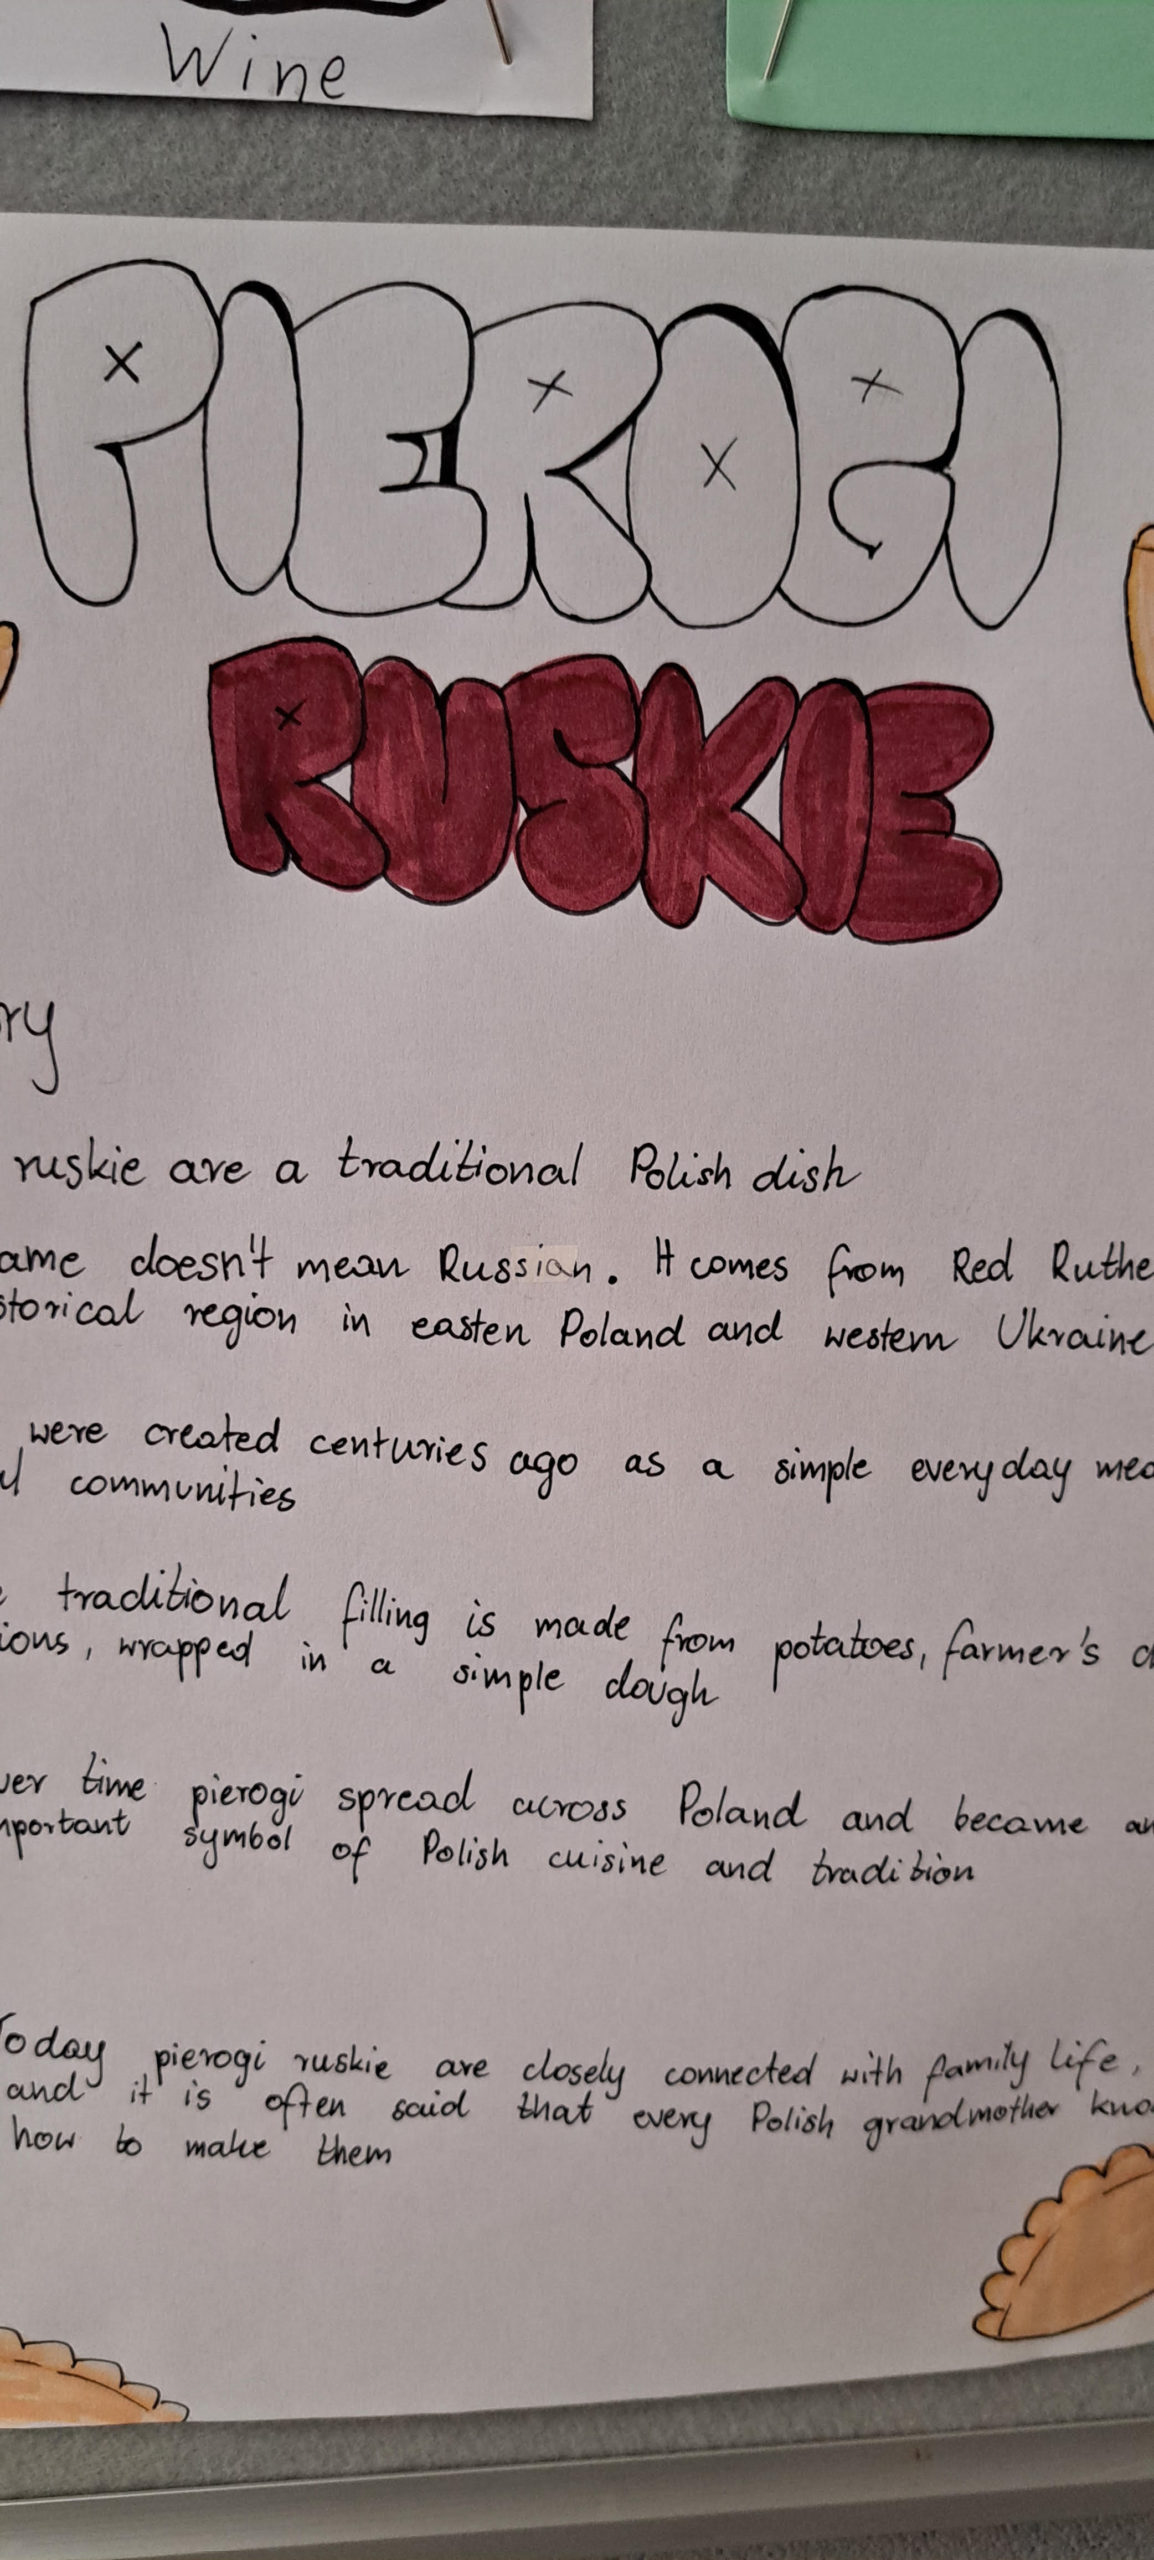 Wine
PIEROGI
RUSKIE
ry
ruskie are a traditional Polish dish
ame doesn't mean Russian. It comes from Red Ruthe
storical region in easten Poland and western Ukraine
were created centuries ago as a simple everyday mea
al communities
e traditional filling is made from potatoes, farmer's c
ions, wrapped in a simple dough
ver time pierogi spread across Poland and became an
mportant symbol of Polish cuisine and tradition
Today pierogi ruskie are closely connected with family life,
and it is often said that every Polish grandmother kno
how to make them